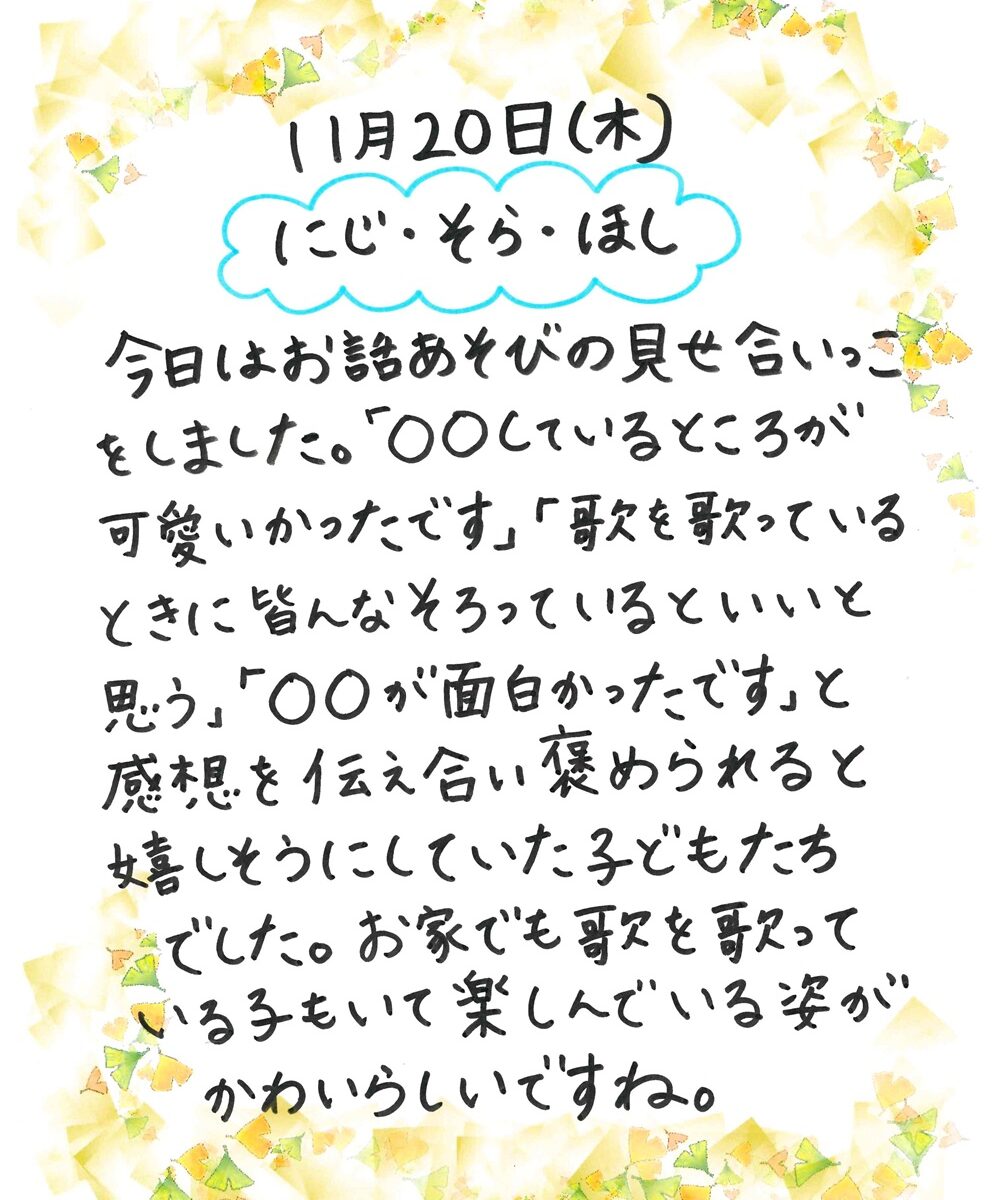 11月20日(木)
にじ・そら・ほし
今日はお話あそびの見せ合いっこ
をしました。「〇〇しているところが
可愛いかったです」「歌を歌っている
ときに皆んなそろっているといいと
思う」「〇〇が面白かったです」と
感想を伝え合い褒められると
嬉しそうにしていた子どもたち
でした。お家でも歌を歌って
いる子もいて楽しんでいる姿が
かわいらしいですね。